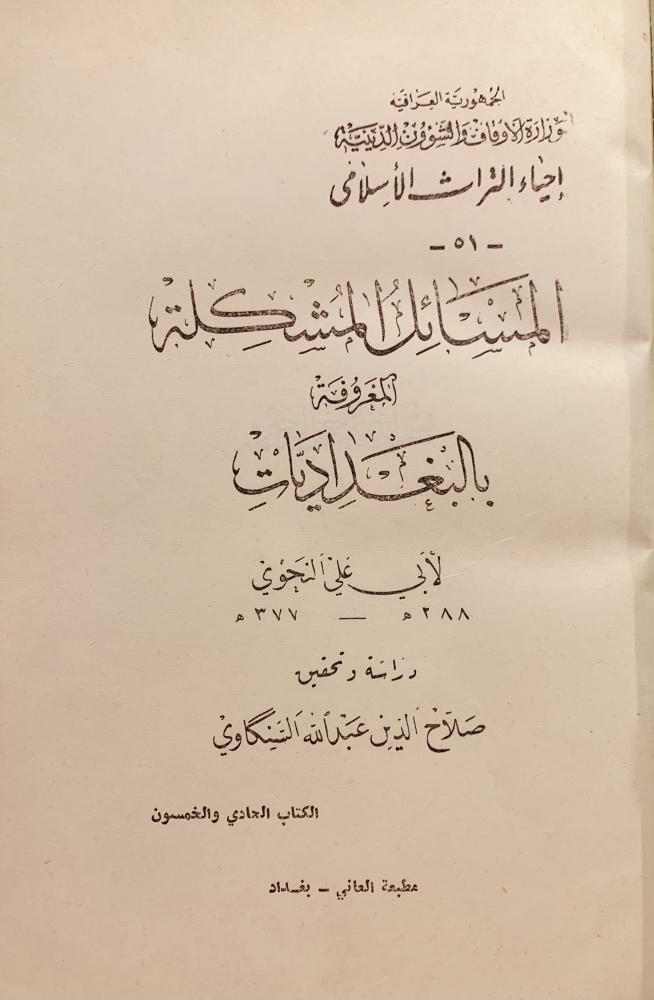 الجمهورية العراقية
وزارة الأوقاف والشؤون الدينية
إحياء التراث الأسلامي
– ٥١ –
المسَائِلُ المُشْكِلة
المعَرُوفَة
بالبَغْدَاديَّاتِ
لأبي عَلي النَحَوي
٢٨٨ هـ — ٣٧٧ هـ
دراسة وتحقيق
صَلَاح الدّين عَبْدالله السَنكاوي
الكتاب الحادي والخمسون
مطبعة العاني – بغداد